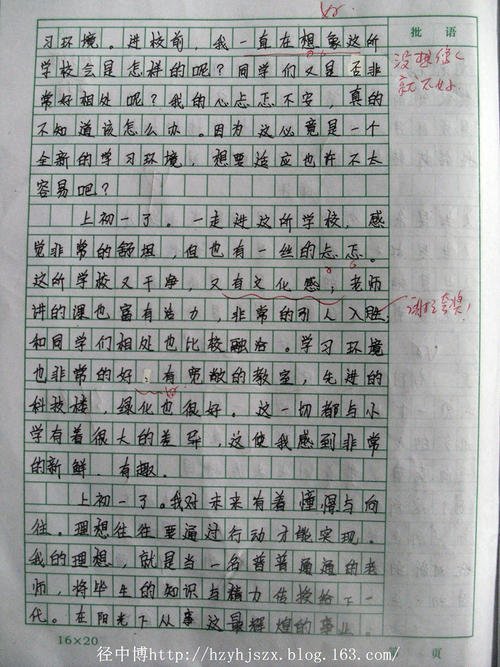 批语
习环境。进校前，我一直在想象这所
学校会是怎样的呢？同学们又是否非
常好相处呢？我的心忐忑不安，真的
不知道该怎么办。因为这必竟是一个
全新的学习环境，想要适应也许不太
容易吧？
上初一了。一走进这所学校，感
觉非常的舒坦，但也有一丝的忐忑。
这所学校又干净，又有文化感；老师
讲的课也富有活力，非常的引人入胜，
和同学们相处也比较融洽。学习环境
也非常的好：有宽敞的教室，先进的
科技楼，绿化也很好。这一切都与小
学有着很大的差异，这使我感到非常
的新鲜，有趣。
上初一了。我对未来有着憧憬与向
往。理想往往要通过行动才能实现。
我的理想，就是当一名普普通通的老
师，将毕生的知识与精力传授给下一
代。在阳光下从事这最辉煌的事业。
就不好
谢谢夸奖！
16×20
页
径中博http://hzyhjszx.blog.163.com/